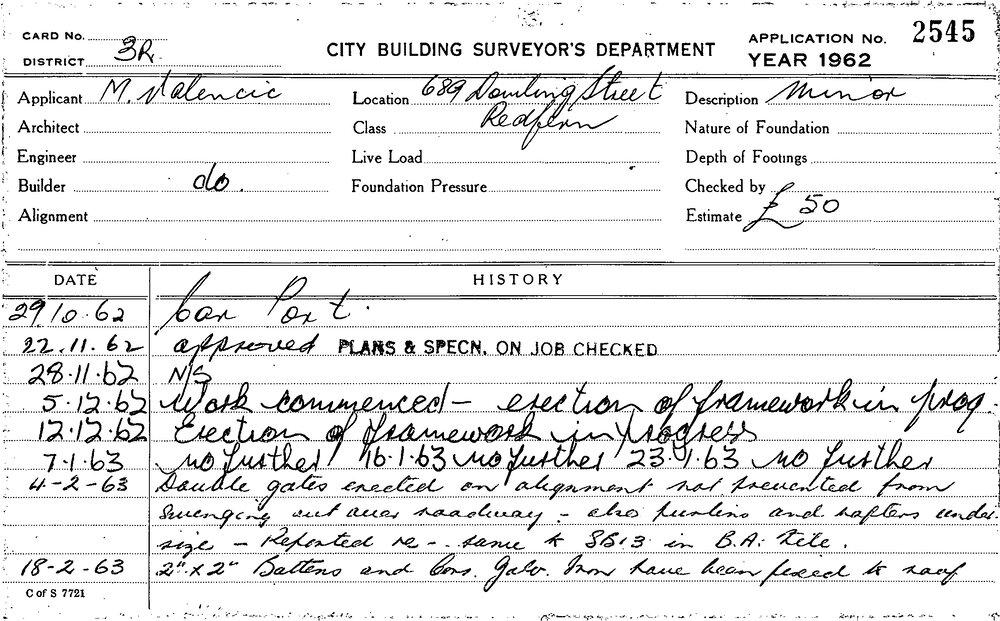 CARD No.
DISTRICT 3R
CITY BUILDING SURVEYOR'S DEPARTMENT
APPLICATION No. 2545
YEAR 1962
Applicant M. Valencic
Location 689 Dowling Street
Redfern
Description Minor
Architect
Class
Nature of Foundation
Engineer
Live Load
Depth of Footings
Builder do.
Foundation Pressure
Checked by
Alignment
Estimate £ 50
DATE HISTORY
29/10.62 Car Port.
22.11.62 approved PLANS & SPECN. ON JOB CHECKED
28.11.62 N/S
5.12.62 Work commenced - erection of framework in prog.
12.12.62 Erection of framework in progress
7.1.63 no further 16.1.63 no further 23.1.63 no further
4-2-63 Double gates erected on alignment not prevented from
swinging out over roadway - also purlins and rafters under
size - Reported re - same to in B.A. file.
18-2-63 2" x 2" Battens and Corr. Galv. Iron have been fixed to roof
C of S 7721